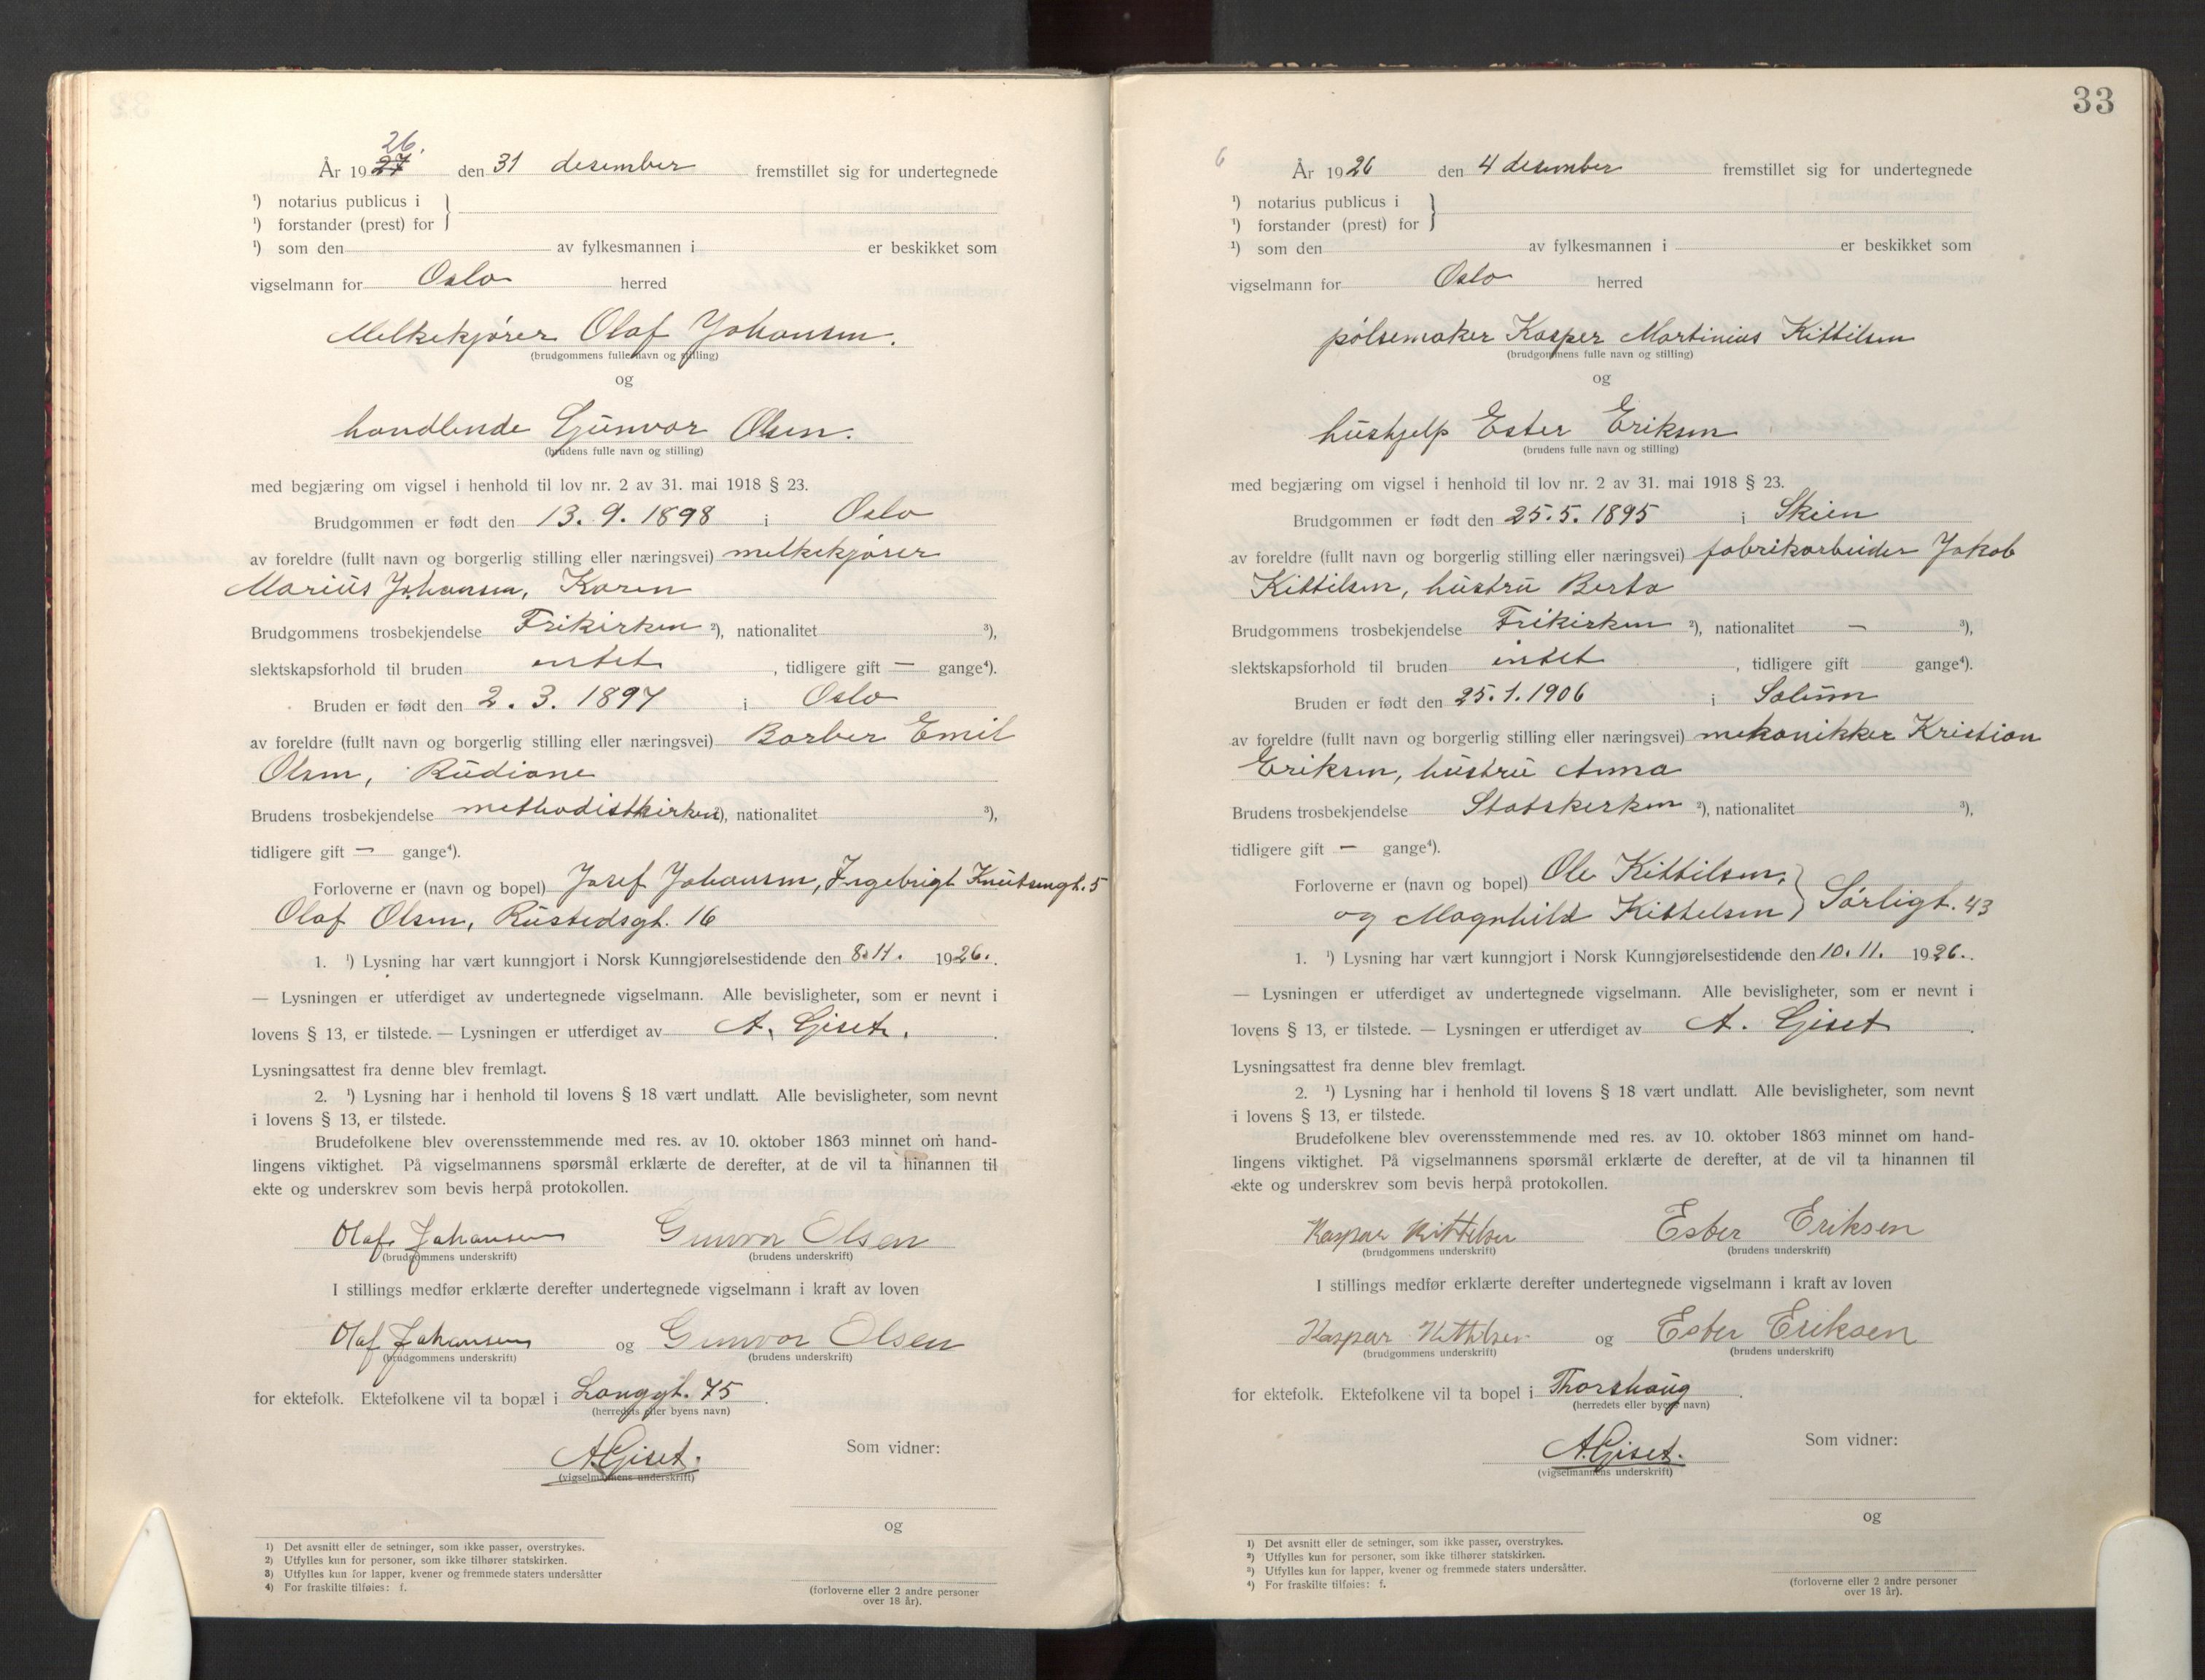 26.
År 1927 den 31 desember fremstillet sig for undertegnede
¹) notarius publicus i
¹) forstander (prest) for
¹) som den av fylkesmannen i er beskikket som
vigselmann for Oslo herred
Melkekjører Olaf Johansen.
(brudgommens fulle navn og stilling)
og
handlende Gunvor Olsen.
(brudens fulle navn og stilling)
med begjæring om vigsel i henhold til lov nr. 2 av 31. mai 1918 § 23.
Brudgommen er født den 13. 9. 1898 i Oslo
av foreldre (fullt navn og borgerlig stilling eller næringsvei) melkekjører
Marius Johansen, Karen
Brudgommens trosbekjendelse Frikirken ²), nationalitet ³),
slektskapsforhold til bruden intet, tidligere gift — gange⁴).
Bruden er født den 2. 3. 1897 i Oslo
av foreldre (fullt navn og borgerlig stilling eller næringsvei) Barber Emil
Olsen, Rudiane
Brudens trosbekjendelse methodistkirken ²), nationalitet ³),
tidligere gift — gange⁴).
Forloverne er (navn og bopel) Josef Johansen, Ingebrigt Knutsensgt. 5
Olaf Olsen, Rustedsgt. 16
1. ¹) Lysning har vært kunngjort i Norsk Kunngjørelsestidende den 8.11. 1926.
— Lysningen er utferdiget av undertegnede vigselmann. Alle bevisligheter, som er nevnt i
lovens § 13, er tilstede. — Lysningen er utferdiget av A. Giset.
Lysningsattest fra denne blev fremlagt.
2. ¹) Lysning har i henhold til lovens § 18 vært undlatt. Alle bevisligheter, som nevnt
i lovens § 13, er tilstede.
Brudefolkene blev overensstemmende med res. av 10. oktober 1863 minnet om hand-
lingens viktighet. På vigselmannens spørsmål erklærte de derefter, at de vil ta hinannen til
ekte og underskrev som bevis herpå protokollen.
Olaf Johansen Gunvor Olsen
(brudgommens underskrift) (brudens underskrift)
I stillings medfør erklærte derefter undertegnede vigselmann i kraft av loven
Olaf Johansen og Gunvor Olsen
(brudgommens underskrift) (brudens underskrift)
for ektefolk. Ektefolkene vil ta bopæl i Langgt. 75.
(herredets eller byens navn)
A. Giset.
(vigselmannens underskrift)
Som vidner:
og
(forloverne eller 2 andre personer
over 18 år).
1) Det avsnitt eller de setninger, som ikke passer, overstrykes.
2) Utfylles kun for personer, som ikke tilhører statskirken.
3) Utfylles kun for lapper, kvener og fremmede staters undersåtter
4) For fraskilte tilføies: f.
33
6
År 1926 den 4 desember fremstillet sig for undertegnede
¹) notarius publicus i
¹) forstander (prest) for
¹) som den av fylkesmannen i er beskikket som
vigselmann for Oslo herred
pølsemaker Kasper Martinius Kittilsen
(brudgommens fulle navn og stilling)
og
hushjelp Ester Eriksen
(brudens fulle navn og stilling)
med begjæring om vigsel i henhold til lov nr. 2 av 31. mai 1918 § 23.
Brudgommen er født den 25. 5. 1895 i Skien
av foreldre (fullt navn og borgerlig stilling eller næringsvei) fabrikarbeider Jakob
Kittilsen, hustru Berta
Brudgommens trosbekjendelse Frikirken ²), nationalitet — ³),
slektskapsforhold til bruden intet, tidligere gift gange⁴).
Bruden er født den 25. 1. 1906 i Solum
av foreldre (fullt navn og borgerlig stilling eller næringsvei) mekanikker Kristian
Eriksen, hustru Anna
Brudens trosbekjendelse Statskirken ²), nationalitet ³),
tidligere gift — gange⁴).
Forloverne er (navn og bopel) Ole Kittilsen,
og Magnhild Kittelsen } Sørligt. 43
1. ¹) Lysning har vært kunngjort i Norsk Kunngjørelsestidende den 10. 11. 1926.
— Lysningen er utferdiget av undertegnede vigselmann. Alle bevisligheter, som er nevnt i
lovens § 13, er tilstede. — Lysningen er utferdiget av A. Giset.
Lysningsattest fra denne blev fremlagt.
2. ¹) Lysning har i henhold til lovens § 18 vært undlatt. Alle bevisligheter, som nevnt
i lovens § 13, er tilstede.
Brudefolkene blev overensstemmende med res. av 10. oktober 1863 minnet om hand-
lingens viktighet. På vigselmannens spørsmål erklærte de derefter, at de vil ta hinannen til
ekte og underskrev som bevis herpå protokollen.
Kaspar Kittelsen Ester Eriksen
(brudgommens underskrift) (brudens underskrift)
I stillings medfør erklærte derefter undertegnede vigselmann i kraft av loven
Kaspar Kittelsen og Ester Eriksen
(brudgommens underskrift) (brudens underskrift)
for ektefolk. Ektefolkene vil ta bopel i Thorshaug.
(herredets eller byens navn)
A. Giset.
(vigselmannens underskrift)
Som vidner:
og
(forloverne eller 2 andre personer
over 18 år).
1) Det avsnitt eller de setninger, som ikke passer, overstrykes.
2) Utfylles kun for personer, som ikke tilhører statskirken.
3) Utfylles kun for lapper, kvener og fremmede staters undersåtter.
4) For fraskilte tilføies: f.